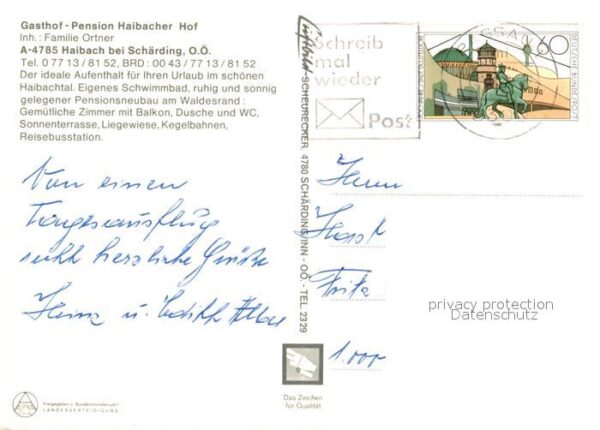 Gasthof - Pension Haibacher Hof
Inh.: Familie Ortner
A-4785 Haibach bei Schärding, O.Ö.
Tel. 0 77 13 / 81 52, BRD : 00 43 / 77 13 / 81 52
Der ideale Aufenthalt für Ihren Urlaub im schönen
Haibachtal. Eigenes Schwimmbad, ruhig und sonnig
gelegener Pensionsneubau am Waldesrand :
Gemütliche Zimmer mit Balkon, Dusche und WC,
Sonnenterrasse, Liegewiese, Kegelbahnen,
Reisebusstation.
Von einen
Tagesausflug
herzliche Grüße
Heinz u.
Luftbild SCHEURECKER, 4780 SCHÄRDING/INN - OÖ - TEL. 2329
Schreib
mal
wieder
Post
60
DEUTSCHE BUNDESPOST
1988
Herrn
Fritz
1.000
privacy protection
Datenschutz
Das Zeichen
für Qualität
Freigegeben v. Bundesministerium f.
LANDESVERTEIDIGUNG